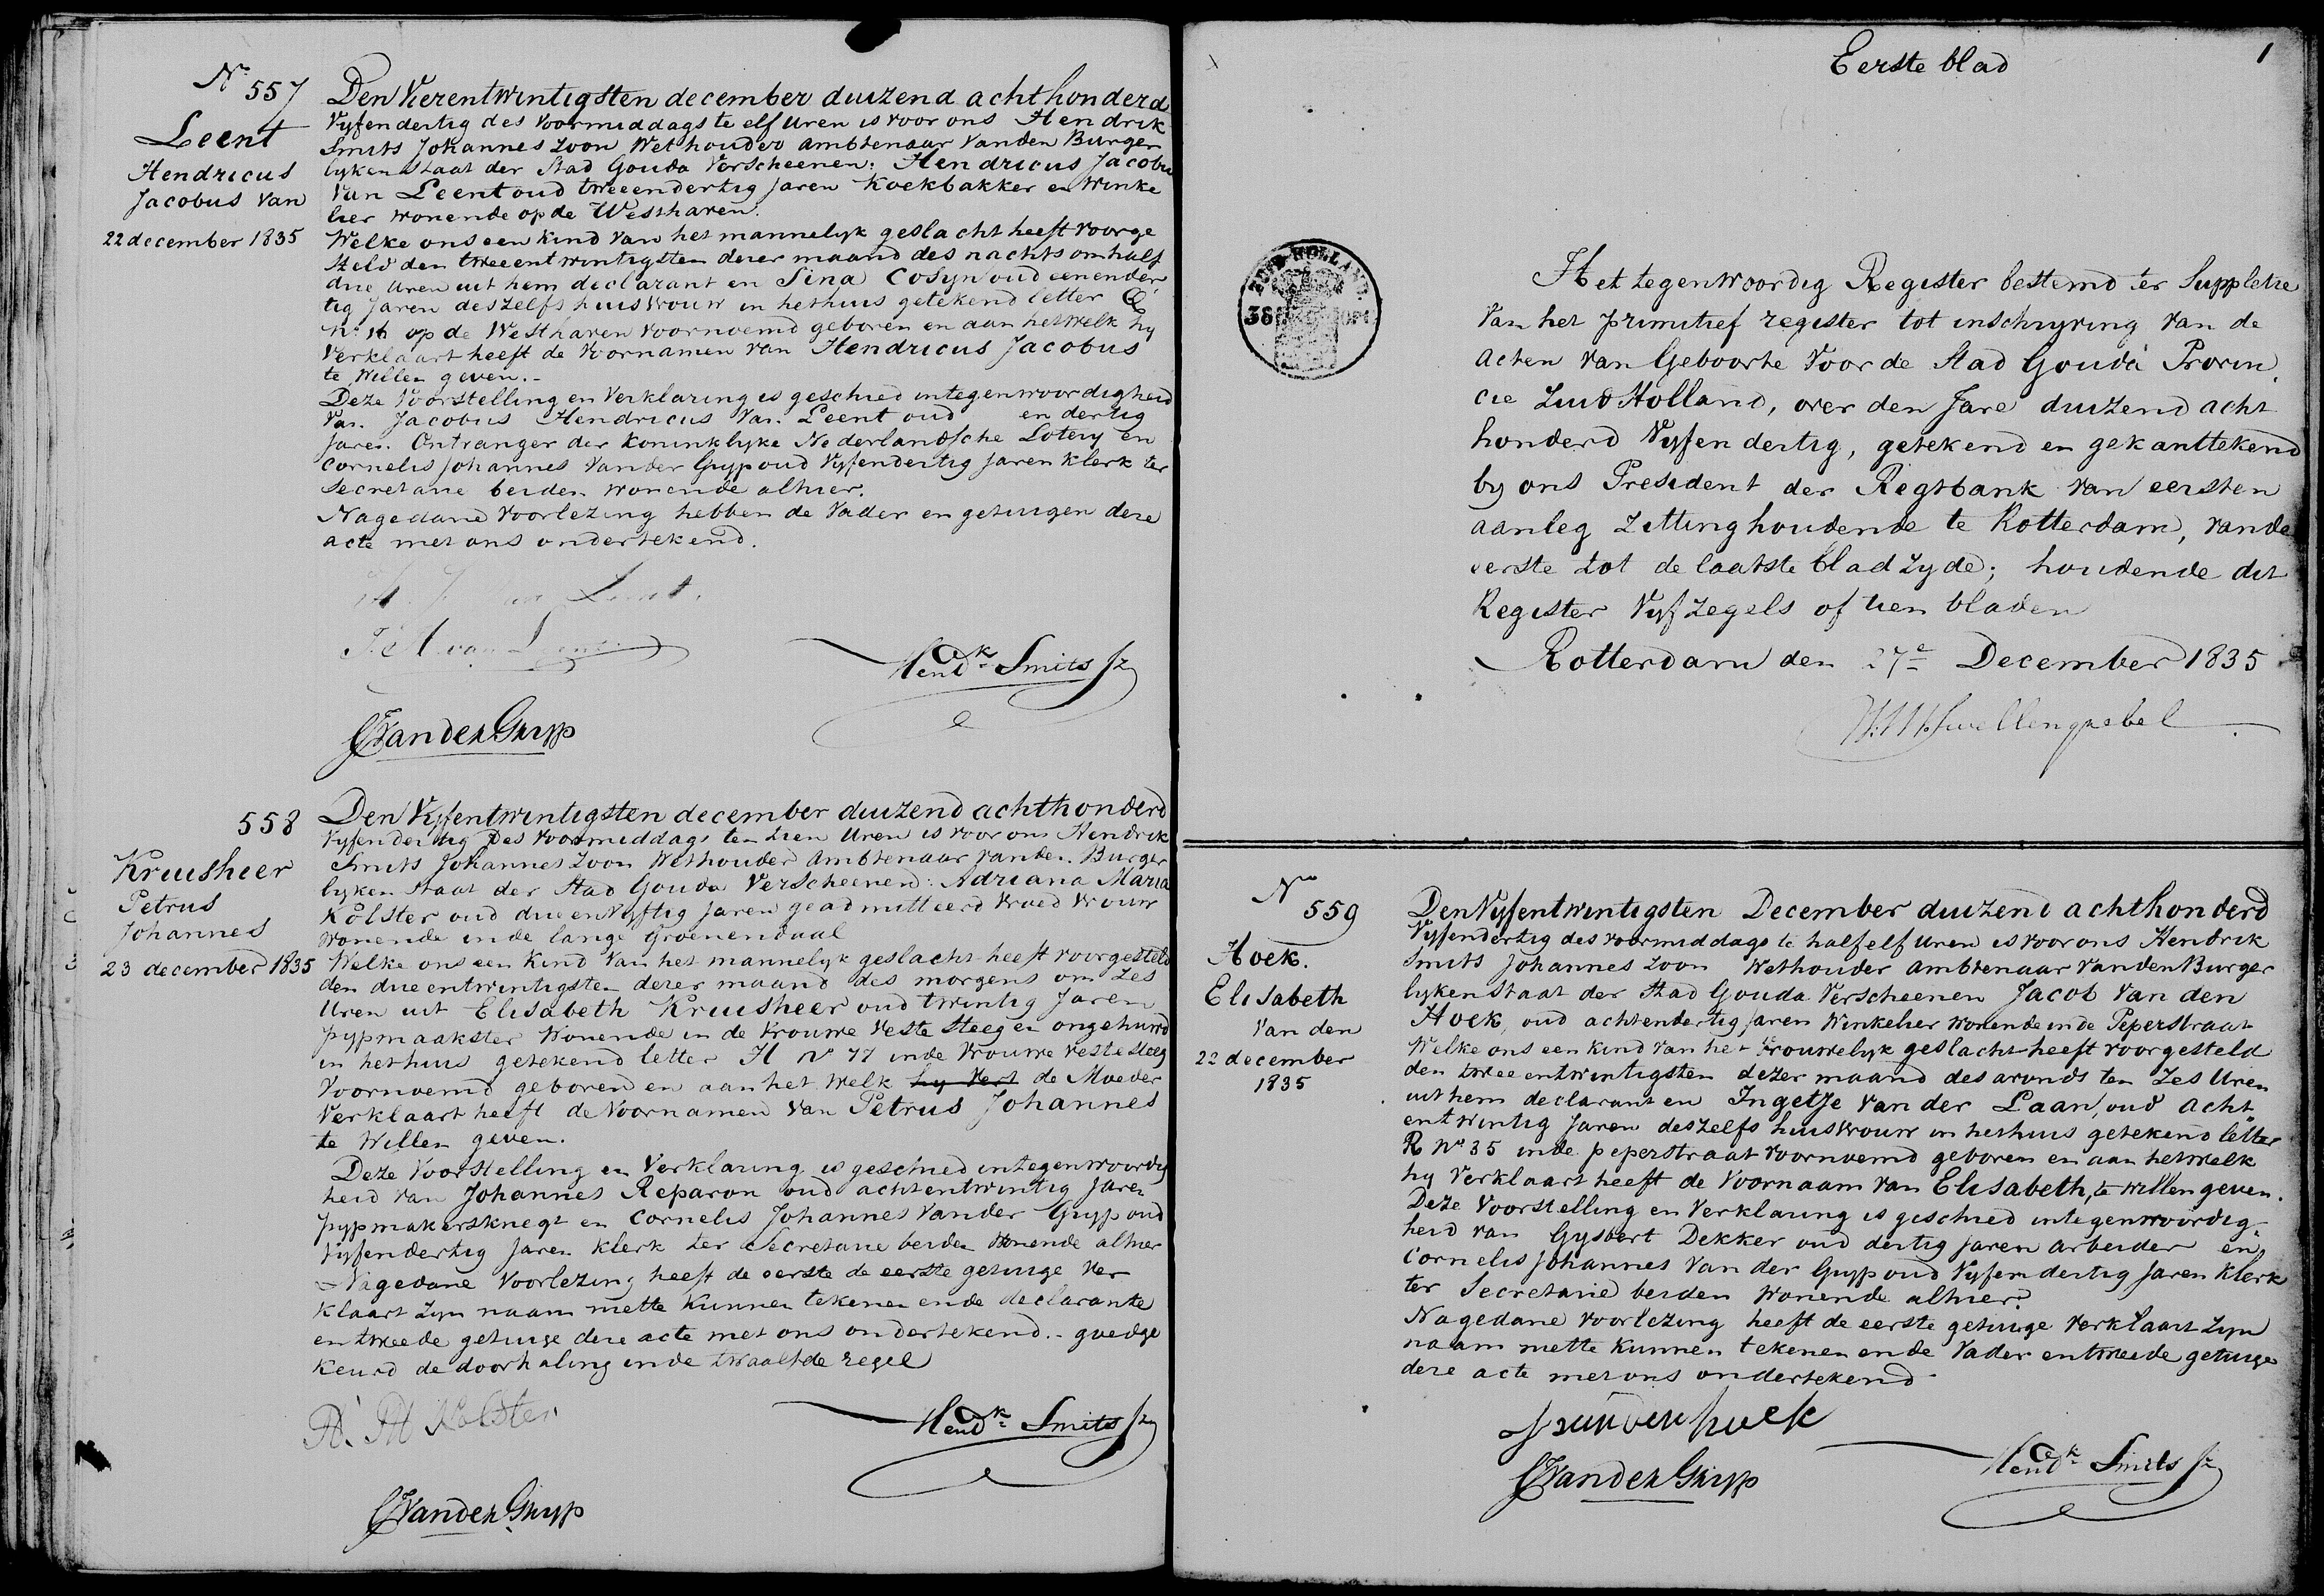 No 557
Leent
Hendricus
Jacobus van
22 december 1835
Den Vierentwintigsten december duizend achthonderd
Vyfendertig des voormiddags te elf uren is voor ons Hendrik
Smits Johannes zoon Wethouder ambtenaar vanden Burger
lyken staat der Stad Gouda verscheenen: Hendricus Jacobu
van Leent oud tweeendertig jaren Koekbakker en winke
lier wonende op de Westhaven.
Welke ons een kind van het mannelyk geslacht heeft voorge
steld den tweeentwintigsten dezer maand des nachts om half
drie uren uit hem declarant en Sina Cosyn oud eenender
tig jaren deszelfs huisvrouw in het huis getekend letter
no op de Westhaven voornoemd geboren en aan hetwelk hy
verklaart heeft de voornamen van Hendricus Jacobus
te willen geven.-
Deze voorstelling en verklaring is geschied in tegenwoordigheid
van Jacobus Hendricus van Leent oud en dertig
jaren Ontvanger der koninklyke Nederlandsche Lotery en
Cornelis Johannes vander Gryp oud vyfendertig jaren klerk ter
secretarie beiden wonende alhier.
Na gedane voorlezing hebben de vader en getuigen deze
acte met ons ondertekend.
van Leent.
J. H. van Leent
Hendk Smits Jz
CJ van der Gryp
558
Kruisheer
Petrus
Johannes
23 december 1835
Den Vyfentwintigsten december duizend achthonderd
vyfendertig des voormiddags ten tien uren is voor ons Hendrik
Smits Johannes zoon Wethouder ambtenaar vanden Burger
lyken staat der Stad Gouda verscheenen: Adriana Maria
Kolster oud drieenvyftig jaren geadmitteerd vroedvrouw
wonende in de lange Groenendaal
Welke ons een kind van het mannelyk geslacht heeft voorgesteld
den drieentwintigsten dezer maand des morgens om zes
uren uit Elisabeth Kruisheer oud twintig jaren
pypmaakster wonende in de Vrouwe Veste steeg en ongehuwd
in het huis getekend letter H no 77 in de Vrouwe veste steeg
voornoemd geboren en aan het welk hy vert de Moeder
verklaart heeft de voornamen van Petrus Johannes
te willen geven.
Deze voorstelling en verklaring is geschied in tegenwoordig
heid van Johannes Reparon oud achtentwintig jaren
pypmakersknegt en Cornelis Johannes vander Gryp oud
vyfendertig jaren klerk ter secretarie beiden wonende alhier
Na gedane voorlezing heeft de eerste de eerste getuige ver
klaart zyn naam niet te kunnen tekenen en de declarante
en tweede getuige deze acte met ons ondertekend.- goedge
keurd de doorhaling in de twaalfde regel
A. M Kolster
Hendk Smits Jz
CJ van der Gryp
Eerste blad
1
ZUID HOLLAND.
38
Het tegenwoordig Register bestemd ter Suppletie
van het primitief register tot inschryving van de
acten van Geboorte voor de Stad Gouda Provin
cie Zuid Holland, over den Jare duizend acht
honderd vyfendertig, getekend en gekanttekend
by ons President der Regtbank van eersten
aanleg Zitting houdende te Rotterdam, vande
eerste tot de laatste bladzyde; houdende dit
Register vyf zegels of tien bladen
Rotterdam den 27e December 1835
Swellengrebel
No 559
Hoek.
Elisabeth
van den
22 december
1835
Den Vyfentwintigsten December duizend achthonderd
vyfendertig des voormiddags te half elf uren is voor ons Hendrik
Smits Johannes zoon Wethouder ambtenaar van den Burger
lyken staat der Stad Gouda verscheenen Jacob van den
Hoek, oud achtendertig jaren winkelier wonende in de Peperstraat
Welke ons een kind van het vrouwelyk geslacht heeft voorgesteld
den tweeentwintigsten dezer maand des avonds ten zes uren
uit hem declarant en Ingetje van der Laan, oud acht
entwintig jaren deszelfs huisvrouw in het huis getekend letter
R no 35 in de peperstraat voornoemd geboren en aan hetwelk
hy verklaart heeft de voornaam van Elisabeth, te willen geven.
Deze voorstelling en verklaring is geschied in tegenwoordig
heid van Gysbert Dekker oud dertig jaren arbeider en
Cornelis Johannes van der Gryp oud vyfendertig jaren klerk
ter Secretarie beiden wonende alhier.
Na gedane voorlezing heeft de eerste getuige verklaart zyn
naam niet te kunnen tekenen en de vader en tweede getuige
deze acte met ons ondertekend.
J van den hoek
CJ van der Gryp
Hendk Smits Jz